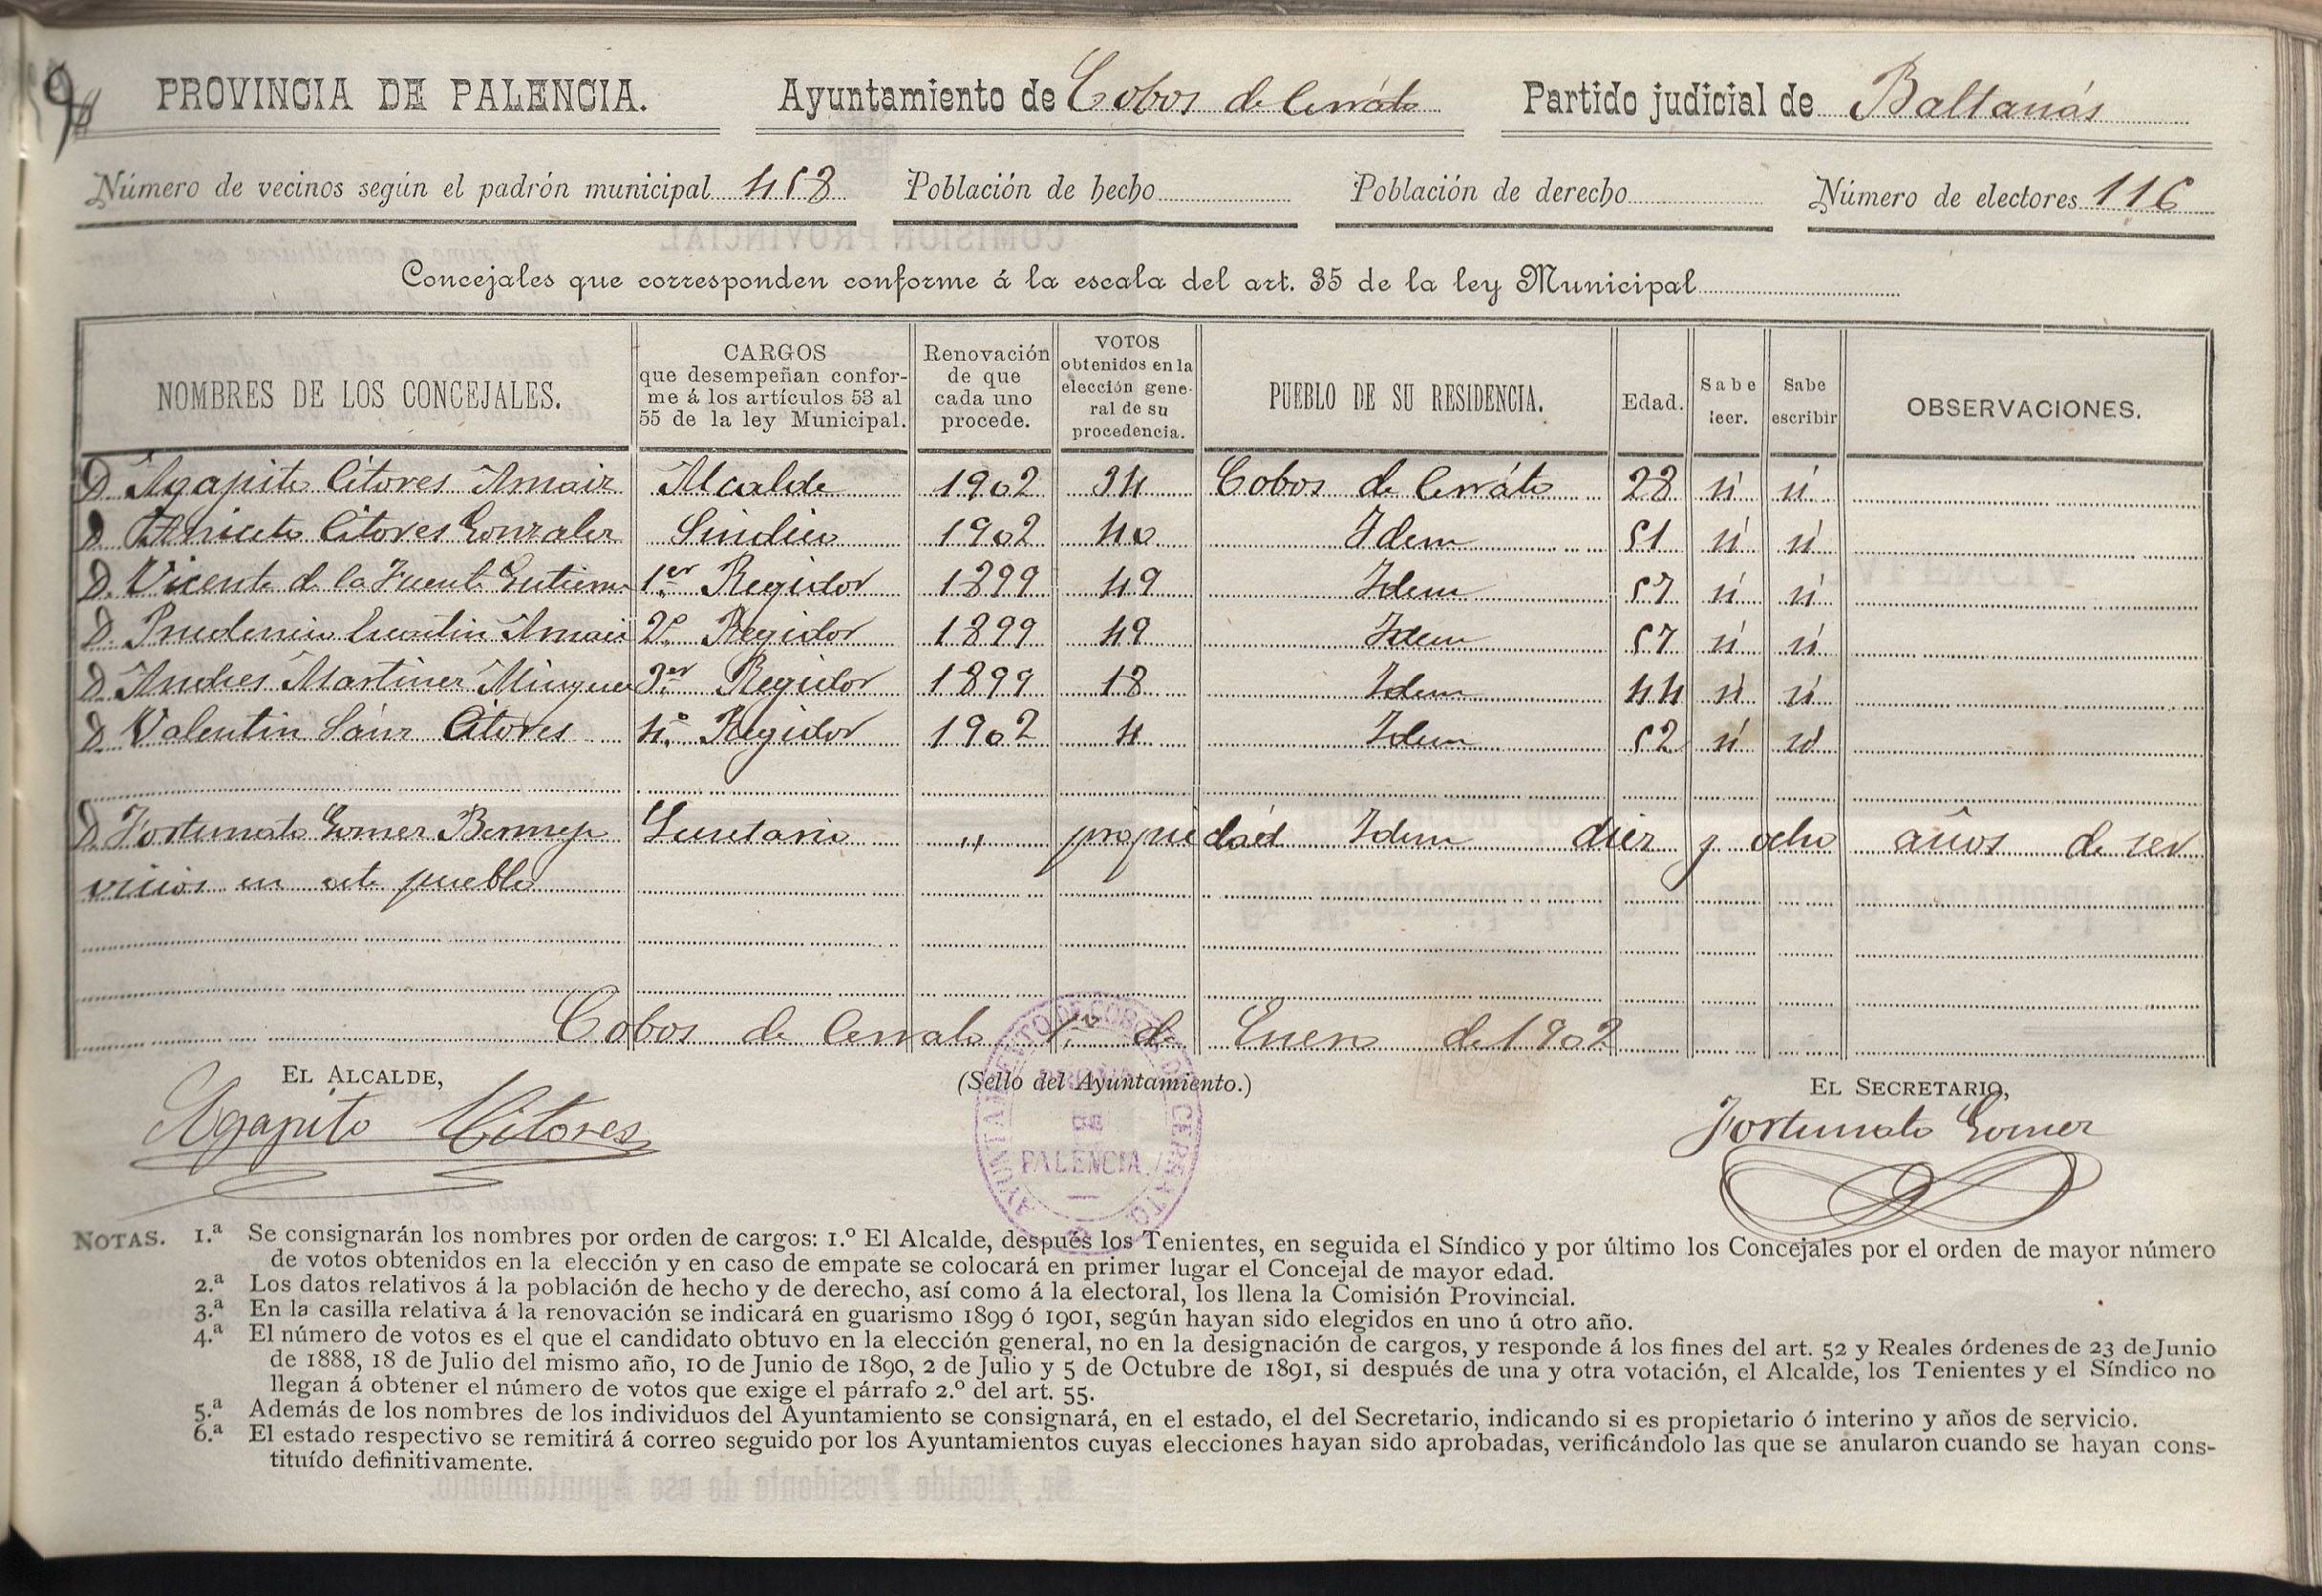 PROVINCIA DE PALENCIA. Ayuntamiento de Cobos de Cerráto Partido judicial de Baltanás
Número de vecinos según el padrón municipal 458 Población de hecho Población de derecho Número de electores 116
Concejales que corresponden conforme á la escala del art. 35 de la ley Municipal
NOMBRES DE LOS CONCEJALES.
CARGOS
que desempeñan confor-
me á los artículos 53 al
55 de la ley Municipal.
Renovación
de que
cada uno
procede.
VOTOS
obtenidos en la
elección gene-
ral de su
procedencia.
PUEBLO DE SU RESIDENCIA.
Edad.
Sabe
leer.
Sabe
escribir
OBSERVACIONES.
D Agapito Citores Amaiz Alcalde 1902 34 Cobos de Cerráto 28 si si
D Aniceto Citores Gonzalez Sindico 1902 40 Idem 51 si si
D. Vicente de la Fuente Gutierrez 1er Regidor 1899 49 Idem 57 si si
D. Prudencio Amaiz 2º Regidor 1899 49 Idem 57 si si
D Andres Martinez Minguez 3er Regidor 1899 18 Idem 44 si si
D Valentin Sáinz Citores 4º Regidor 1902 4 Idem 52 si
D. Fortunato Gomez Bermejo Secretario " propiedád Idem diez y ocho años de ser
vicios en este pueblo
Cobos de Cerrato 1º de Enero de 1902
EL ALCALDE, (Sello del Ayuntamiento.) EL SECRETARIO,
Agapito Citores Fortunato Gomez
AYUNTAMIENTO DE COBOS DE CERRATO
PALENCIA
NOTAS. 1.ª Se consignarán los nombres por orden de cargos: 1.º El Alcalde, después los Tenientes, en seguida el Síndico y por último los Concejales por el orden de mayor número
de votos obtenidos en la elección y en caso de empate se colocará en primer lugar el Concejal de mayor edad.
2.ª Los datos relativos á la población de hecho y de derecho, así como á la electoral, los llena la Comisión Provincial.
3.ª En la casilla relativa á la renovación se indicará en guarismo 1899 ó 1901, según hayan sido elegidos en uno ú otro año.
4.ª El número de votos es el que el candidato obtuvo en la elección general, no en la designación de cargos, y responde á los fines del art. 52 y Reales órdenes de 23 de Junio
de 1888, 18 de Julio del mismo año, 10 de Junio de 1890, 2 de Julio y 5 de Octubre de 1891, si después de una y otra votación, el Alcalde, los Tenientes y el Síndico no
llegan á obtener el número de votos que exige el párrafo 2.º del art. 55.
5.ª Además de los nombres de los individuos del Ayuntamiento se consignará, en el estado, el del Secretario, indicando si es propietario ó interino y años de servicio.
6.ª El estado respectivo se remitirá á correo seguido por los Ayuntamientos cuyas elecciones hayan sido aprobadas, verificándolo las que se anularon cuando se hayan cons-
tituído definitivamente.